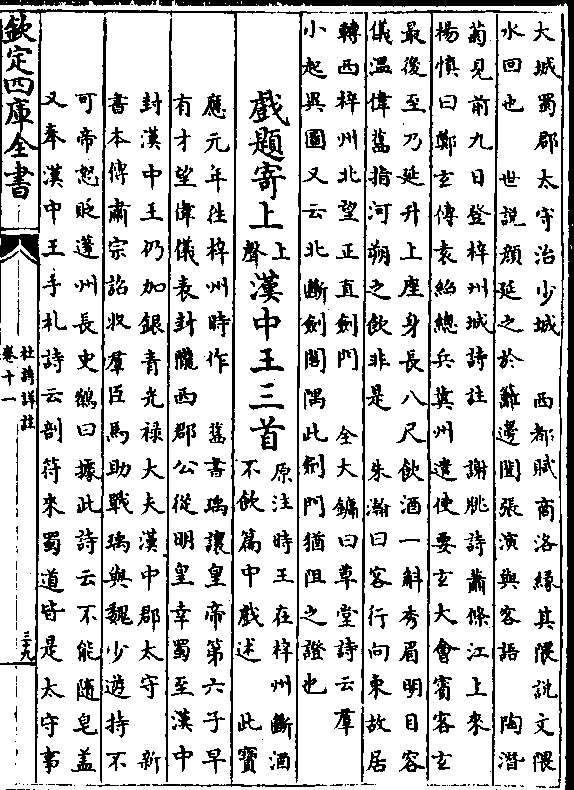 大城蜀郡太守治少城　西都賦商洛緣其隈說文隈
水回也　世說顏延之於籬邊聞張演與客語　陶潛
菊見前九日登梓州城詩註　謝朓詩蕭條江上來
楊慎曰鄭玄傳袁紹總兵冀州遣使要玄大會賓客玄
最後至乃延升上座身長八尺飲酒一斛秀眉明目容
儀溫偉舊指河朔之飲非是　朱瀚曰客行向東故居
轉西梓州北望正直劍門　全大鏞曰草堂詩云羣
小起異圖又云北斷劍閣隅此劍門猶阻之證也
戲題寄上上聲漢中王三首原注時王在梓州斷酒不飲篇中戲述　此寶
應元年在梓州時作　舊書瑀讓皇帝第六子早
有才望偉儀表封隴西郡公從明皇幸蜀至漢中
封漢中王仍加銀青光祿大夫漢中郡太守　新
書本傳肅宗詔收羣臣馬助戰瑀與魏少遊持不
可帝怒貶蓬州長史鶴曰據此詩云不能隨皂蓋
又奉漢中王手札詩云剖符來蜀道皆是太守事
欽定四庫全書
杜詩詳註
卷十一
三九